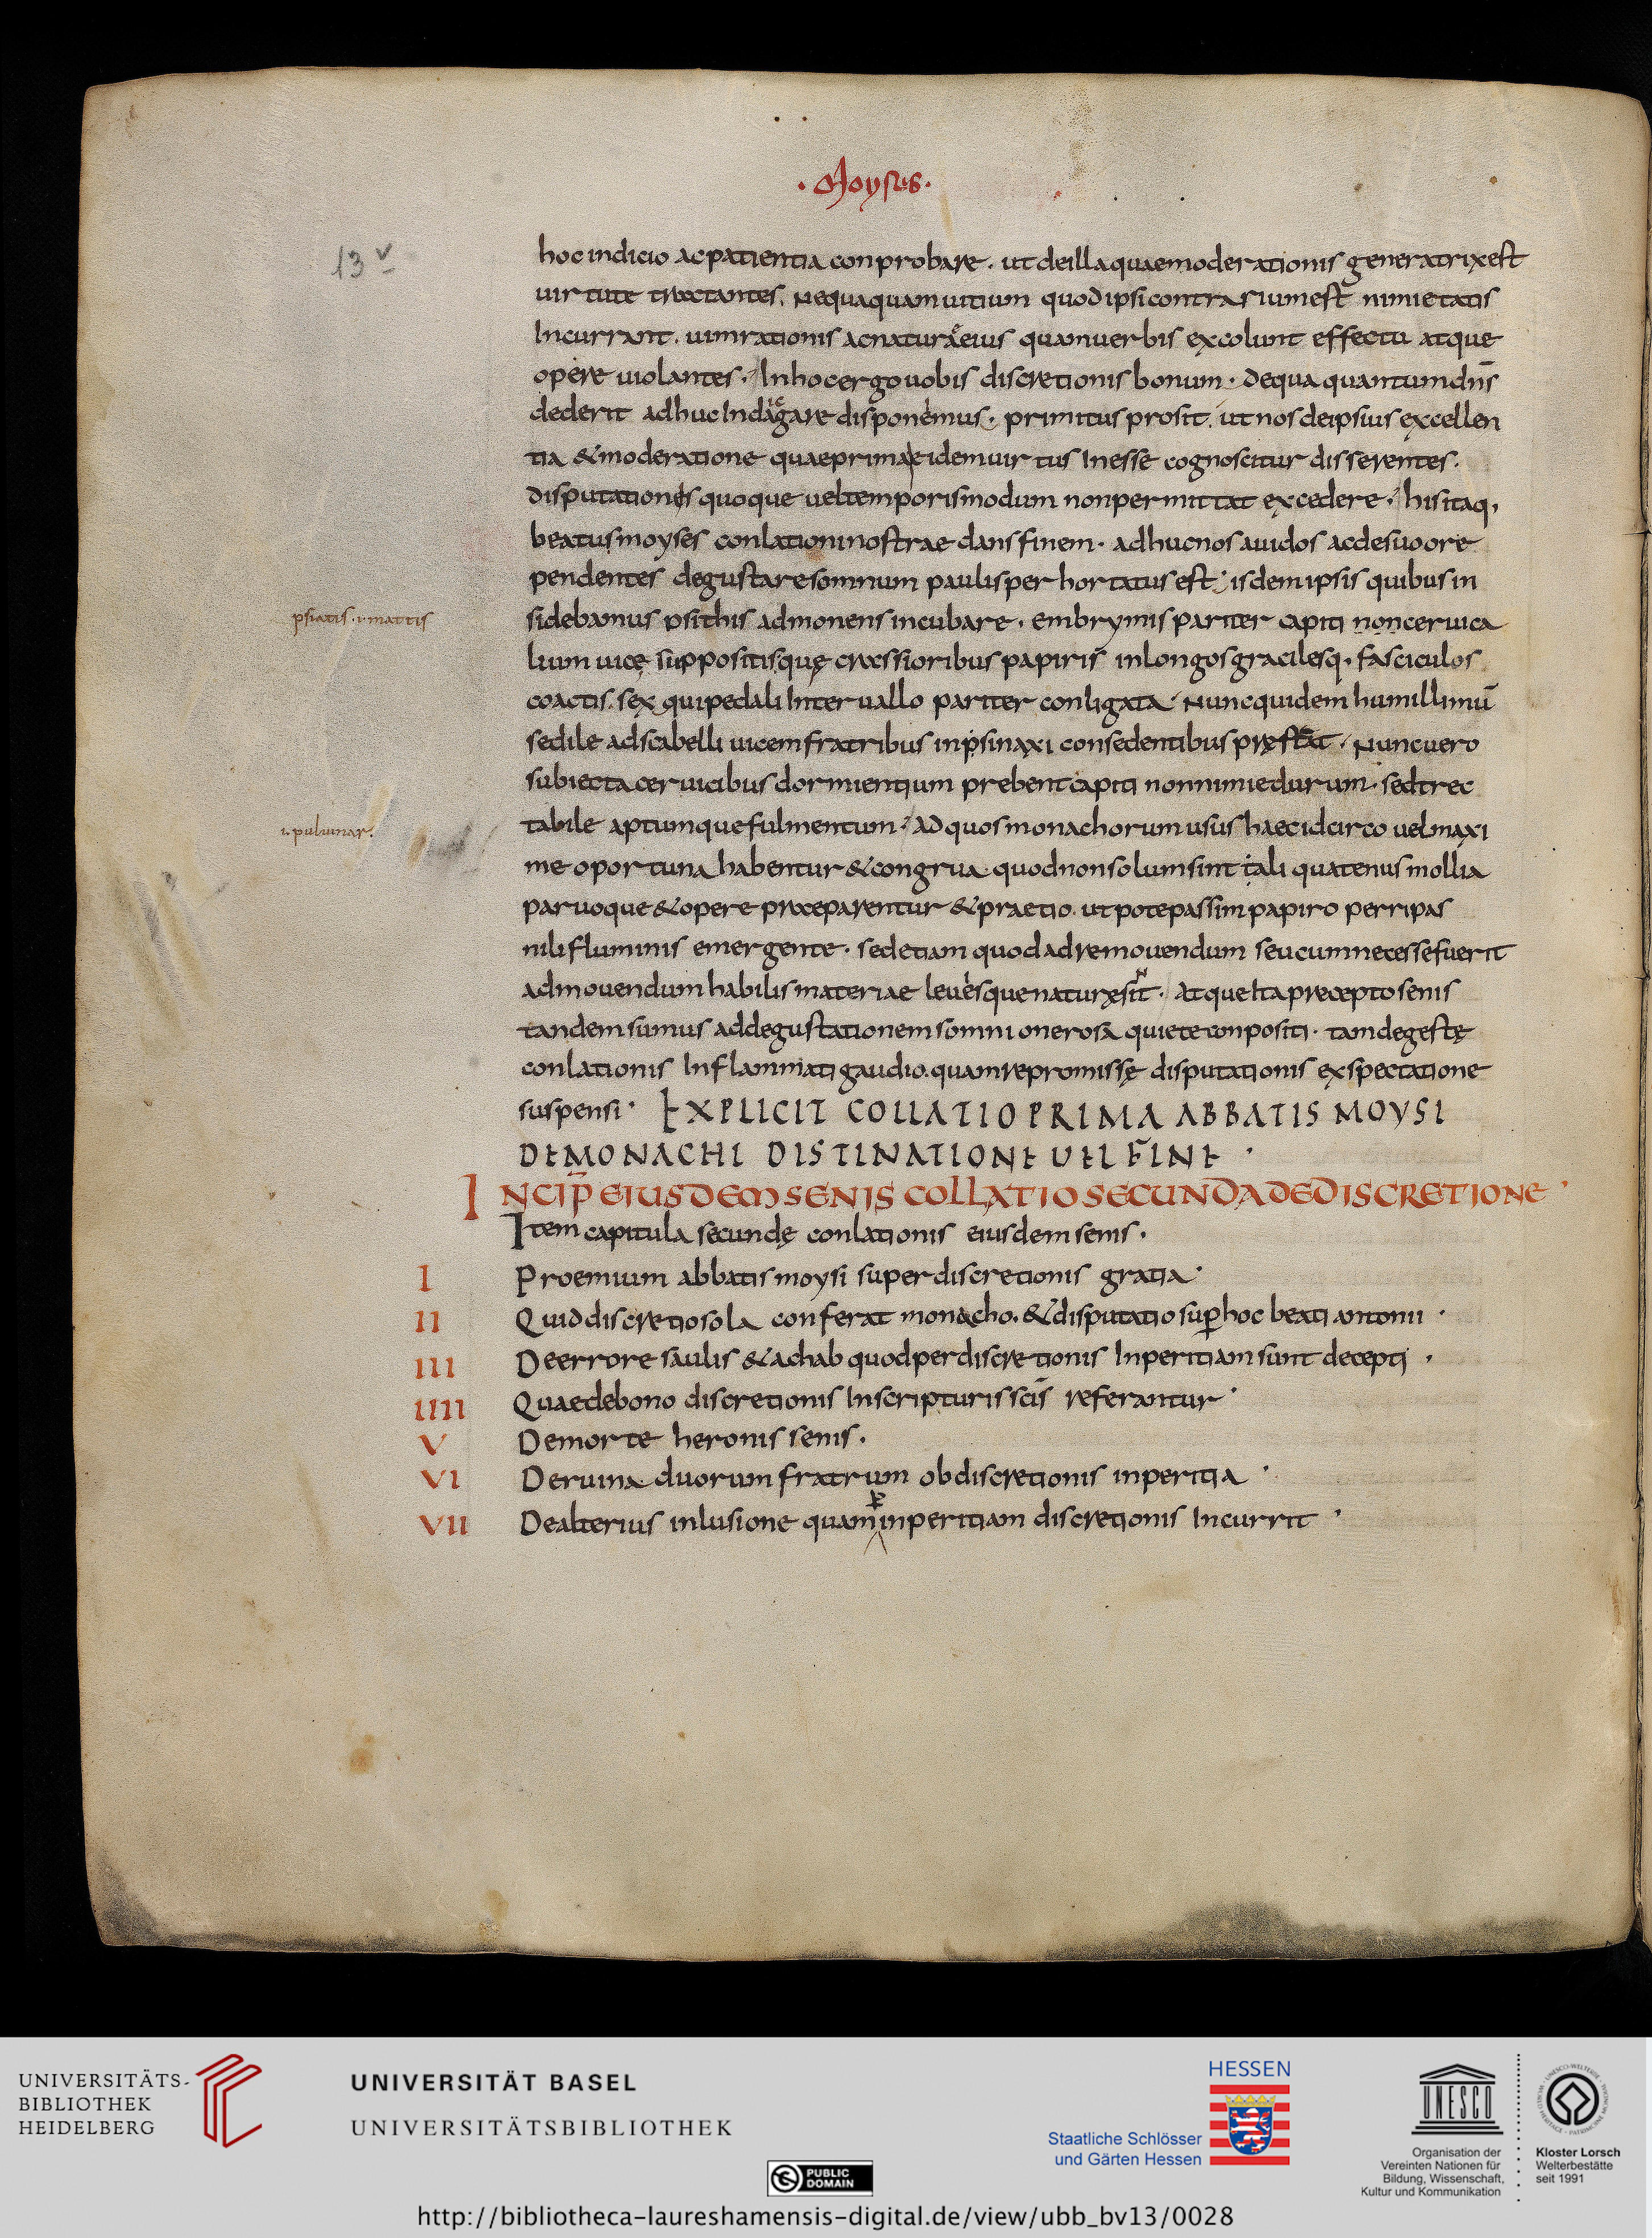 · Moyses ·
13 v
hoc indicio ac patientia conprobare . ut de illa quae moderationis generatrix est
uirtute tractantes . nequaquam uitium quod ipsi contrarium est nimietatis
Incurrant . uim rationis ac naturae eius quam uerbis excolunt effectu atque
opere uiolantes . In hoc ergo uobis discretionis bonum . de qua quantum dn̄s
dederit adhuc Indagare disponemus . primitus prosit . ut nos de ipsius excellen
tia & moderatione quae prima eidem uirtus Inesse cognoscitur disserentes .
disputationis quoque uel temporis modum non permittat excedere . his itaq,
beatus moyses conlationi nostrae dans finem . adhuc nos auidos ac de suo ore
pendentes degustare somnum paulisper hortatus est ; isdem ipsis quibus in
psiatis · i· mattis
sidebamus psithis admonens incubare . embrymis pariter capiti non ceruica
lium uicę suppositisquę crassioribus papiris in longos gracilesq. fasciculos
coactis . sex qui pedali Interuallo pariter conligata . Nunc quidem humillimū
sedile ad scabelli uicem fratribus in psinaxi consedentibus pręstat . Nunc uero
subiecta ceruicibus dormientium prebent capiti non nimie durum . sed trec
i· puluinar .
tabile aptumque fulmentum . Ad quos monachorum usus haec idcirco uel maxi
me oportuna habentur & congrua . quod non solum sint tali quatenus mollia
paruoque & opere praeparentur & praetio . ut pote passim papiro per ripas
nili fluminis emergente . sed etiam quod ad remouendum seu cum necesse fuerit
admouendum habilis materiae leuesque naturę sint . Atque Ita precepto senis
tandem sumus ad degustationem somni onerosa quiete conpositi . tam de gestę
conlationis Inflammati gaudio . quam repromissę disputationis exspectatione
suspensi · EXPLICIT COLLATIO PRIMA ABBATIS MOYSI
DE MONACHI DISTINATIONE UEL FINE ·
INCIP̄ EIUSDEM SENIS COLLATIO SECUNDA DE DISCRETIONE ·
Item capitula secundę conlationis eiusdem senis .
I Proemium abbatis moysi super discretionis gratia ·
II Quid discretio sola conferat monacho . & disputatio sup hoc beati antonii ·
III De errore saulis & achab quod per discretionis Inperitiam sunt decepti ·
IIII Quae de bono discretionis In scripturis scīs referantur ·
V De morte heronis senis .
VI De ruina duorum fratrum ob discretionis inperitia ·
VII De alterius inlusione quam p inperitiam discretionis Incurrit ·
UNIVERSITÄTS-
BIBLIOTHEK
HEIDELBERG
UNIVERSITÄT BASEL
UNIVERSITÄTSBIBLIOTHEK
HESSEN
Staatliche Schlösser
und Gärten Hessen
UNESCO
Organisation der
Vereinten Nationen für
Bildung, Wissenschaft,
Kultur und Kommunikation
Kloster Lorsch
Welterbestätte
seit 1991
PUBLIC
DOMAIN
http://bibliotheca-laureshamensis-digital.de/view/ubb_bv13/0028